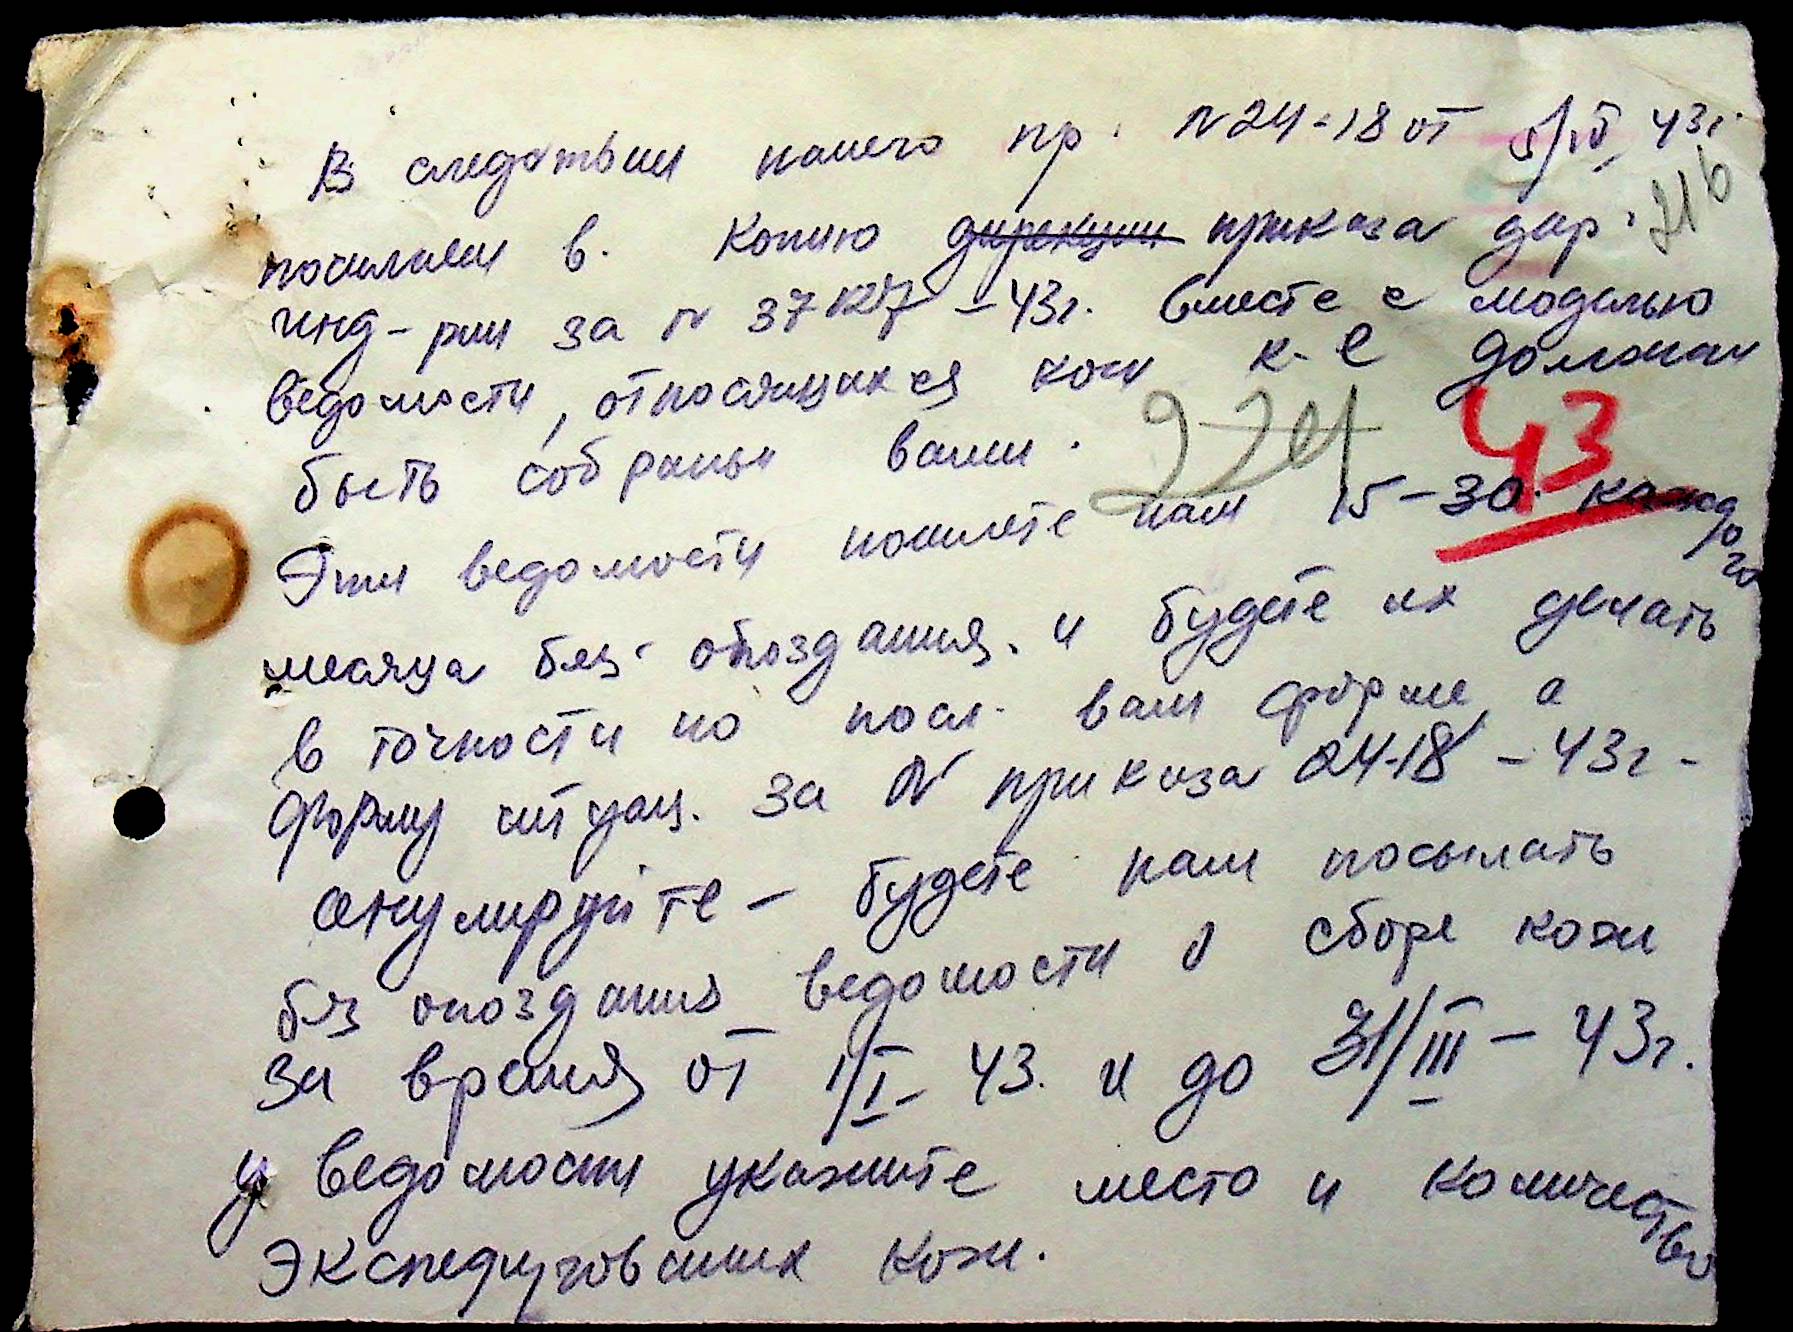 В следствии нашего пр. N 24-18 от 5/IV 43г.
216
посылаем в. копию дирекции приказа дир.
инд-рии за N 37 - 43г. вместе с моделью
ведомости, относящихся кож к-е должни
224 43
быть собраны вами.
Эти ведомости пошлете нам 15-30. каждого
месяца без опоздания. и будете их делать
в точности по посл. вам форме, а
форму ситуац. за N приказа 24-18 - 43г -
анулируйте - будете нам посылать
без опоздания ведомости о сборе кожи
за время от 1/I - 43. и до 31/III - 43г.
у ведомости укажите место и количество
экспедугованих кож.